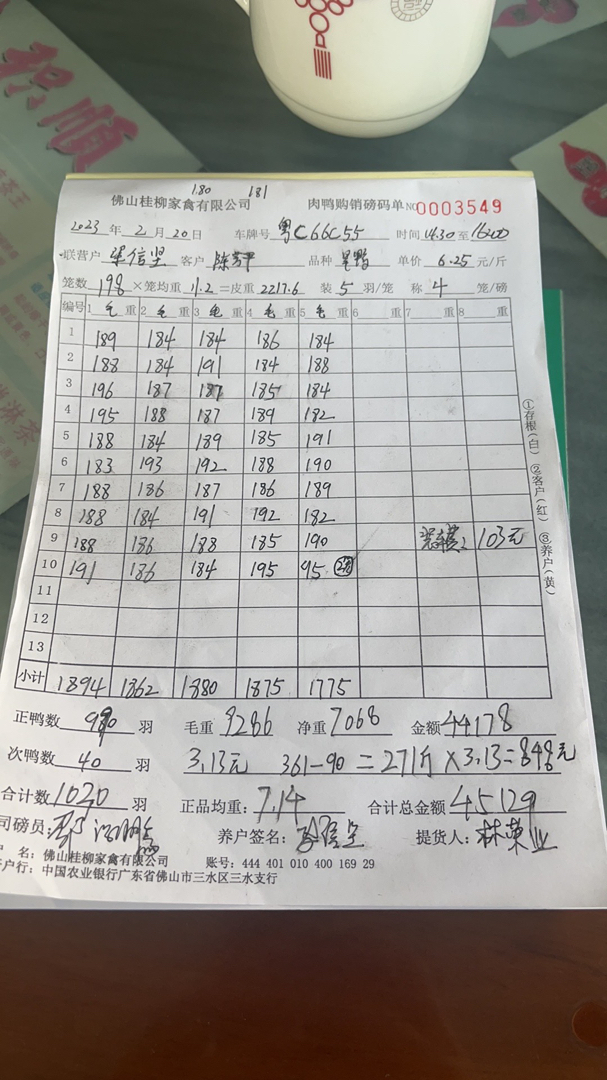 积顺
180 181
佛山桂柳家禽有限公司 肉鸭购销磅码单 NO 0003549
2023 年 2 月 20 日 车牌号 粤C66C55 时间 14:30 至 16:00
联营户 梁信坚 客户 品种 单价 6.25 元/斤
笼数 198 ×笼均重 11.2 =皮重 2217.6 装 5 羽/笼 称 4 笼/磅
编号 1 毛 重 2 毛 重 3 毛 重 4 毛 重 5 毛 重 6 重 7 重 8 重
1 189 184 184 186 184
2 188 184 191 184 188
3 196 187 187 185 184
4 195 188 187 189 182
5 188 184 189 185 191
6 183 193 192 188 190
7 188 186 187 186 189
8 188 184 191 192 182
9 188 186 188 185 190 103元
10 191 186 184 195 95
11
12
13
小计 1894 1862 1880 1875 1775
①存根(白) ②客户(红) ③养户(黄)
正鸭数 980 羽 毛重 9286 净重 7068 金额 44178
次鸭数 40 羽 3.13元 361-90=271斤×3.13=848元
合计数 1020 羽 正品均重: 7.14 合计总金额 45129
司磅员: 养户签名: 提货人: 林荣业
名: 佛山桂柳家禽有限公司 账号: 444 401 010 400 169 29
户行: 中国农业银行广东省佛山市三水区三水支行